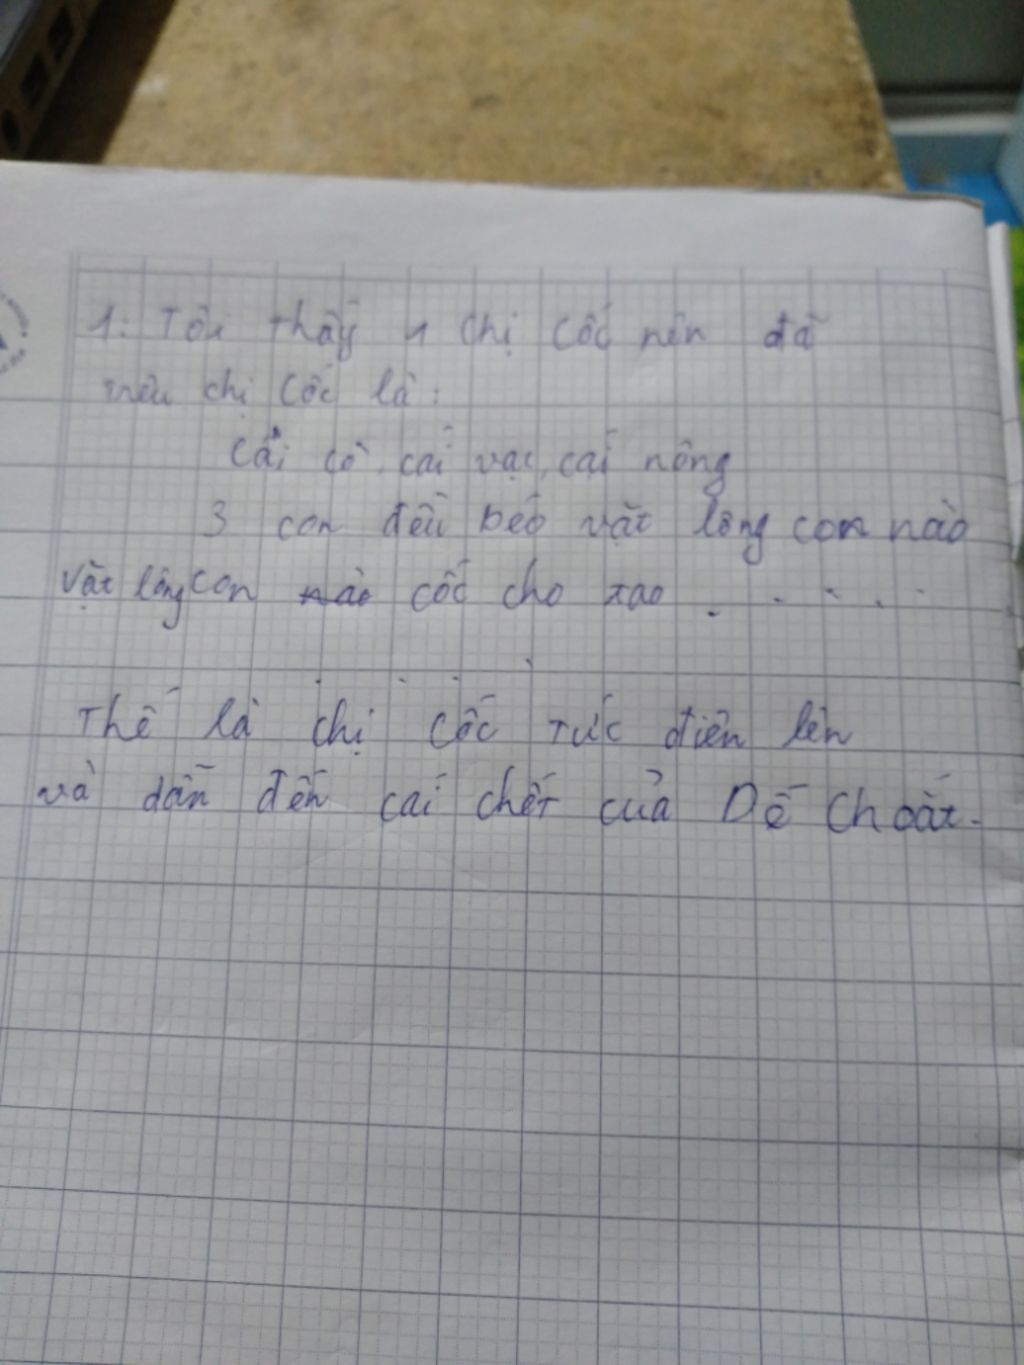 1: Tôi thấy 1 chị Cốc nên đã
trêu chị Cốc là:
Cái cò, cái vạc, cái nông
3 con đều béo vặt lông con nào
vặt lông con nào cốc cho tao . . . . .
Thế là chị Cốc tức điên lên
và dẫn đến cái chết của Dế Choắt.